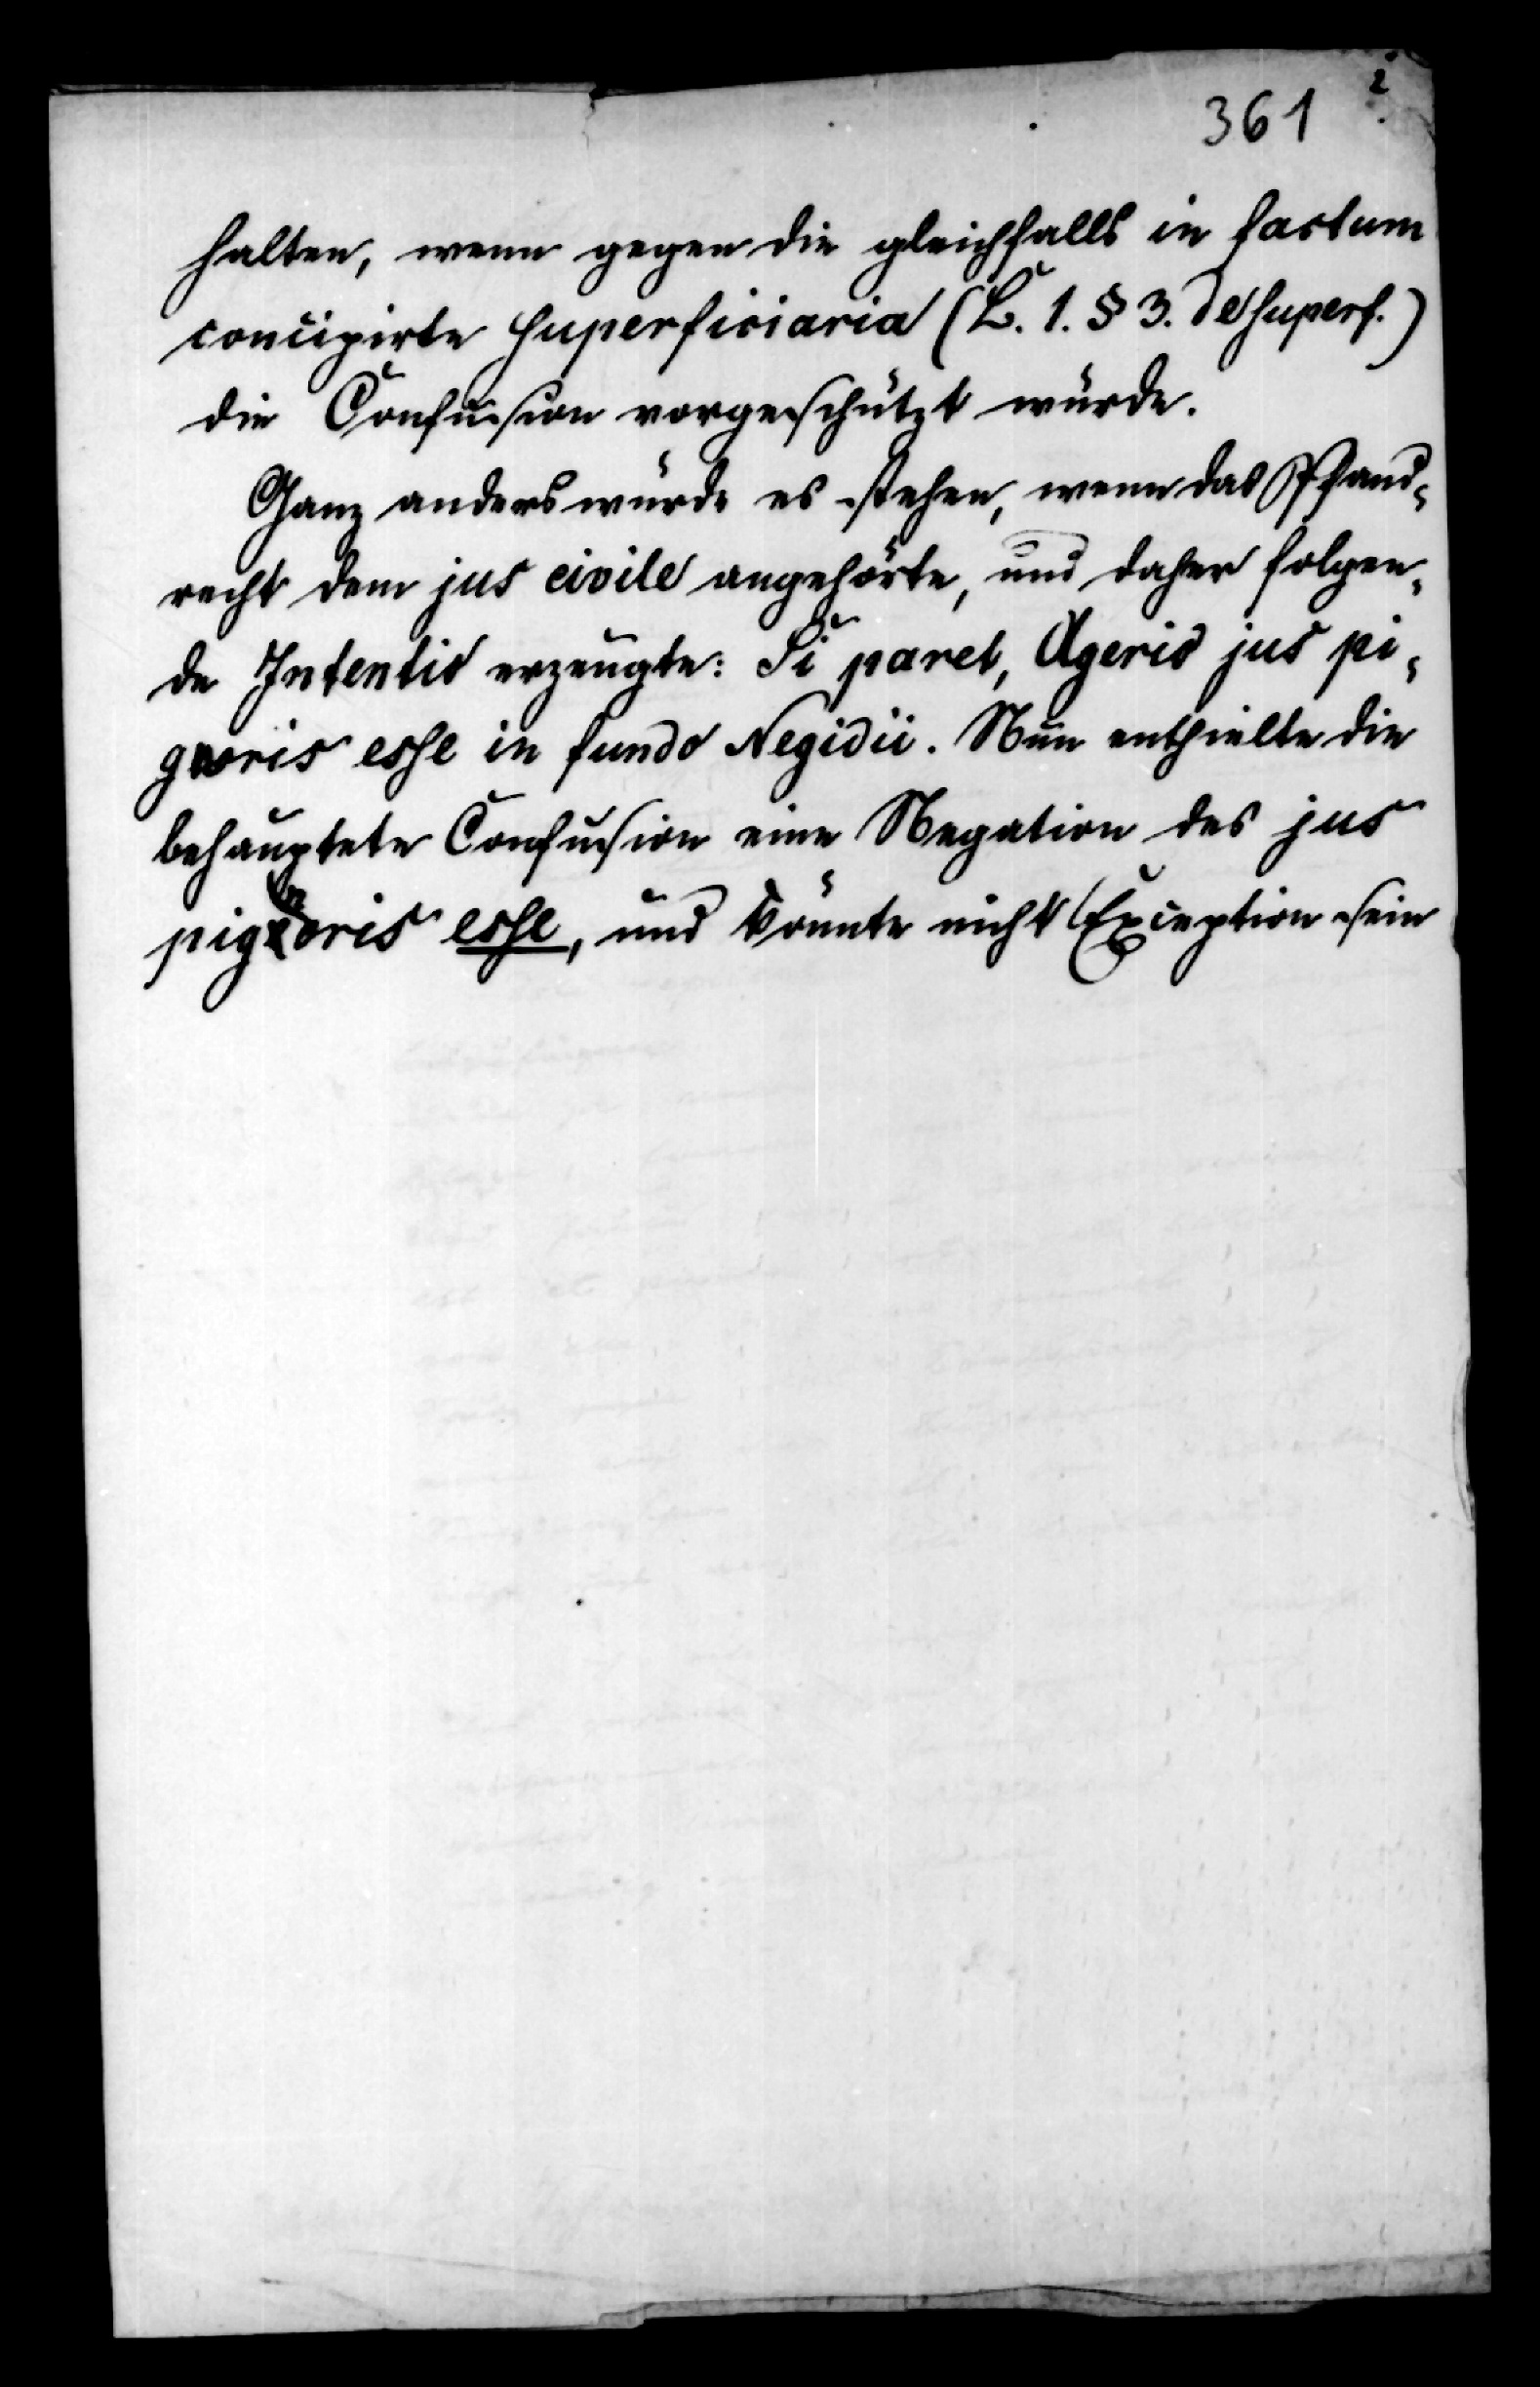 2
361
halten, wenn gegen die gleichfalls in factum
concipirte superficiaria (L. 1. § 3. de superf.)
die Confusion vorgeschützt würde.
Ganz anders würde es stehen, wenn das Pfand-
recht dem jus civile angehörte, und daher folgen-
de Intentio erzeugte: Si paret, Agerio jus pi-
gnoris esse in fundo Negidii. Nun enthielte die
behauptete Confusion eine Negation des jus
pignoris esse, und könnte nicht Exception sein